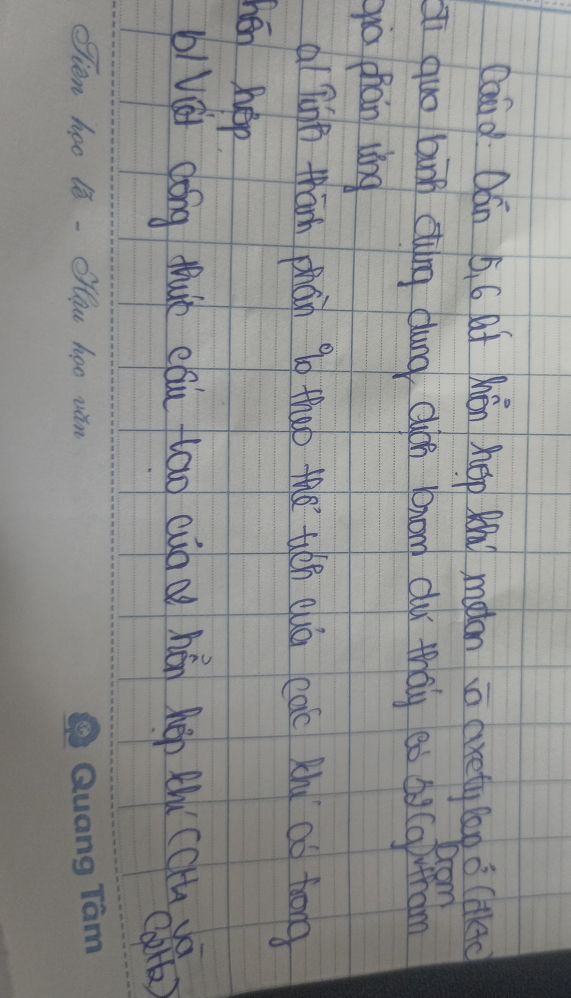 Câu 2. Dẫn 5,6 lít hỗn hợp khí metan và axetylen ở (đktc)
đi qua bình đựng dung dịch brom dư thấy có 32(g) brom tham
gia phản ứng
a/ Tính thành phần % theo thể tích của các khí có trong
hỗn hợp
b/ Viết công thức cấu tạo của 2 hỗn hợp khí (CH4 và
C2H2)
Tiên học lễ - Hậu học văn
Quang Tâm